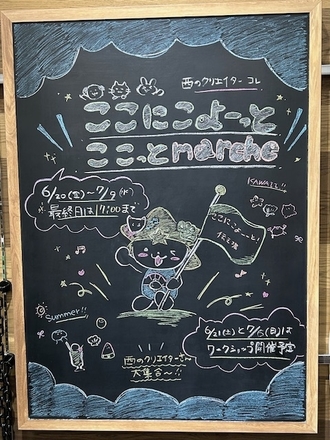 西のクリエイターコレ
ここにこよーっと
ここっとmarche
6/20(金)〜7/9(水)
最終日は17:00まで
KAWAII!!
ここにこよーっと!
summer!!
6/21(土)と7/5(土)は
ワークショップ開催予定
西のクリエイターさん
大集合〜!!